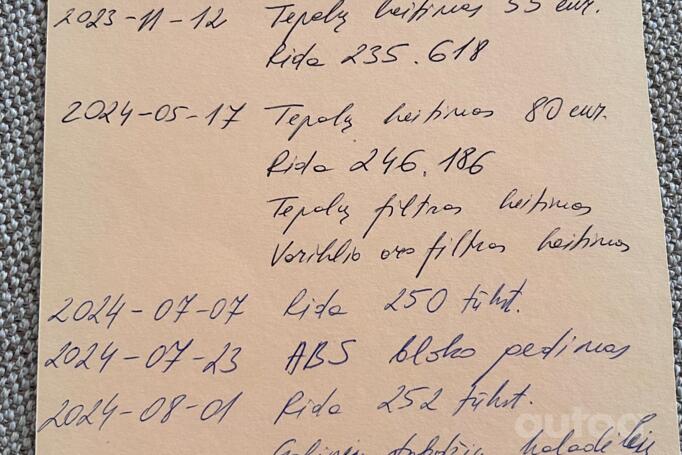 2023-11-12 Tepalų keitimas 55 eur.
Rida 235.618
2024-05-17 Tepalų keitimas 80 eur.
Rida 246.186
Tepalų filtras keitimas
Variklio oro filtras keitimas
2024-07-07 Rida 250 tūkst.
2024-07-23 ABS bloko pedimas
2024-08-01 Rida 252 tūkst.